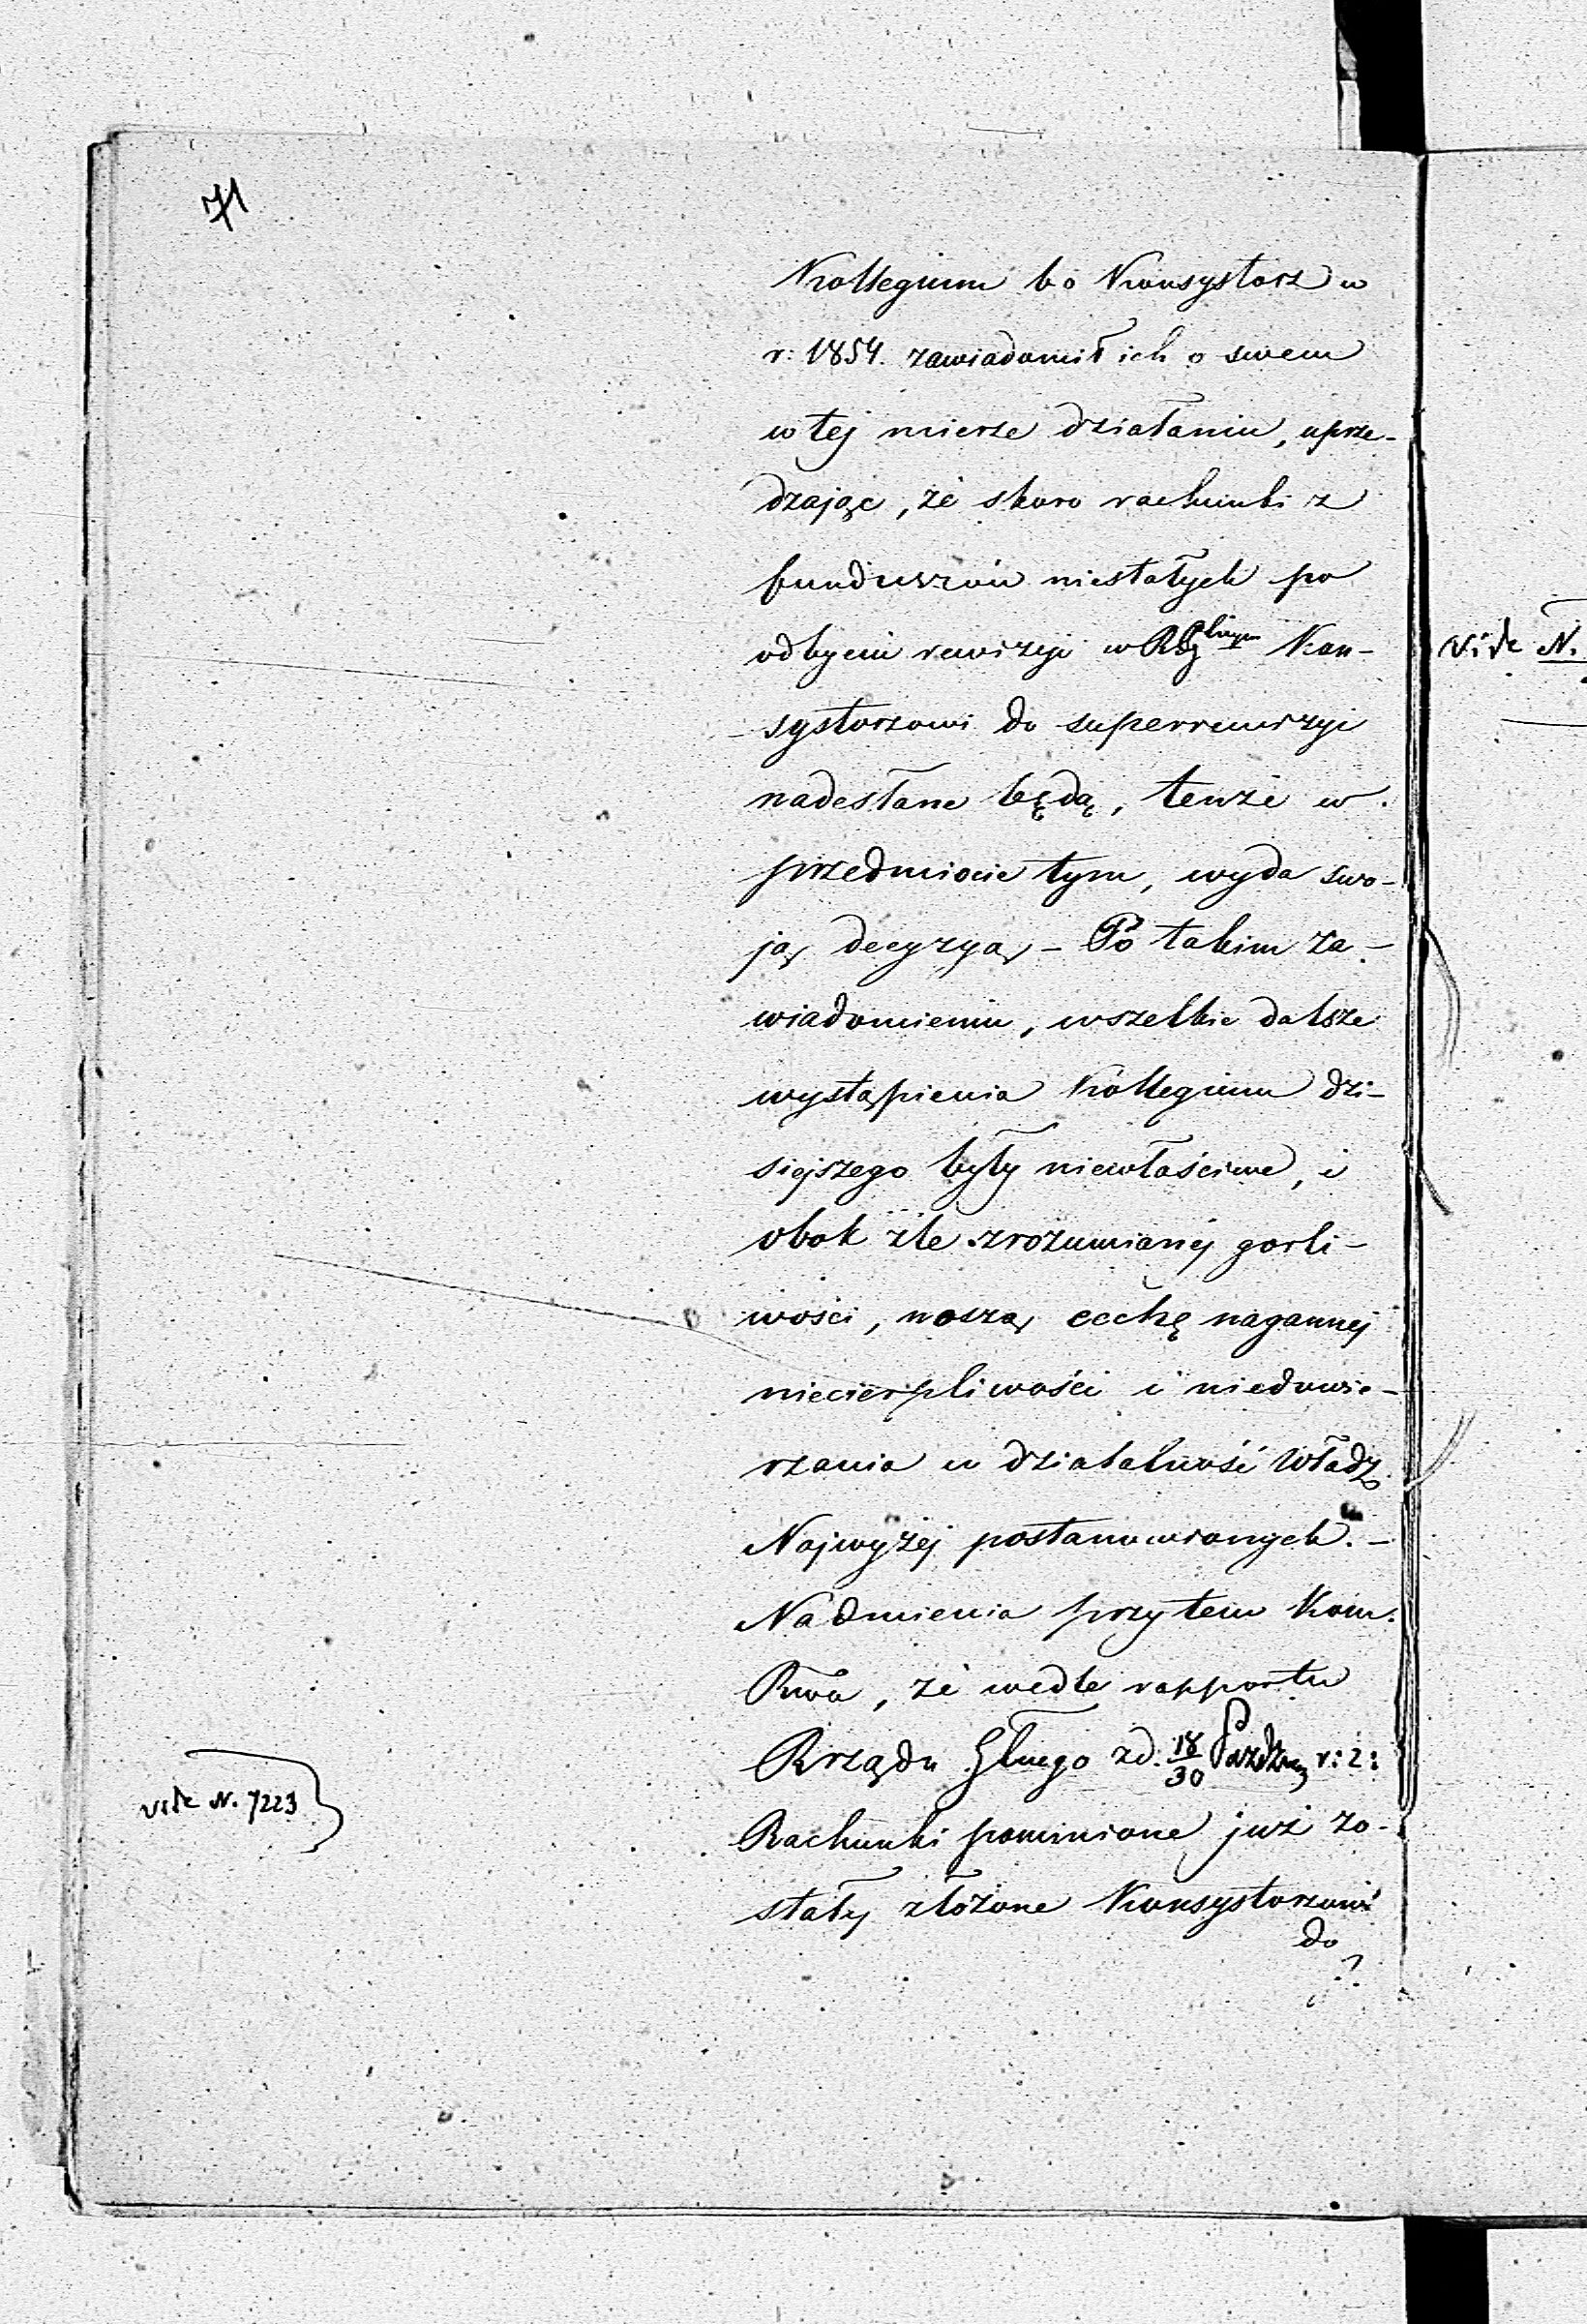 71
Kollegium bo Konsystorz w
r: 1854. zawiadomił ich o swem
w tej mierze działaniu, uprze-
dzając, że skoro rachunki z
funduszów niestałych po
odbyciu rewizji w Kon-
systorzowi do superrewizyi
nadesłane będą, tenże w
przedmiocie tym, wyda swo-
ją decyzyą – Po takim za-
wiadomieniu, wszelkie dalsze
wystąpienia Kollegium dzi-
siejszego były niewłaściwe, i
obok źle zrozumianej gorli-
wości, noszą cechę nagannej
niecierpliwości i niedowie-
rzania w działalność Władz
Najwyżej postanowionych. –
Nadmienia przytem Kom.
Rwa, że wedle rapportu
Rządu Głnego z d. 18/30 Paździer r: z:
Rachunki pominione już zo-
stały złożone Konsystorzowi
do
vide N. 7223
vide N.